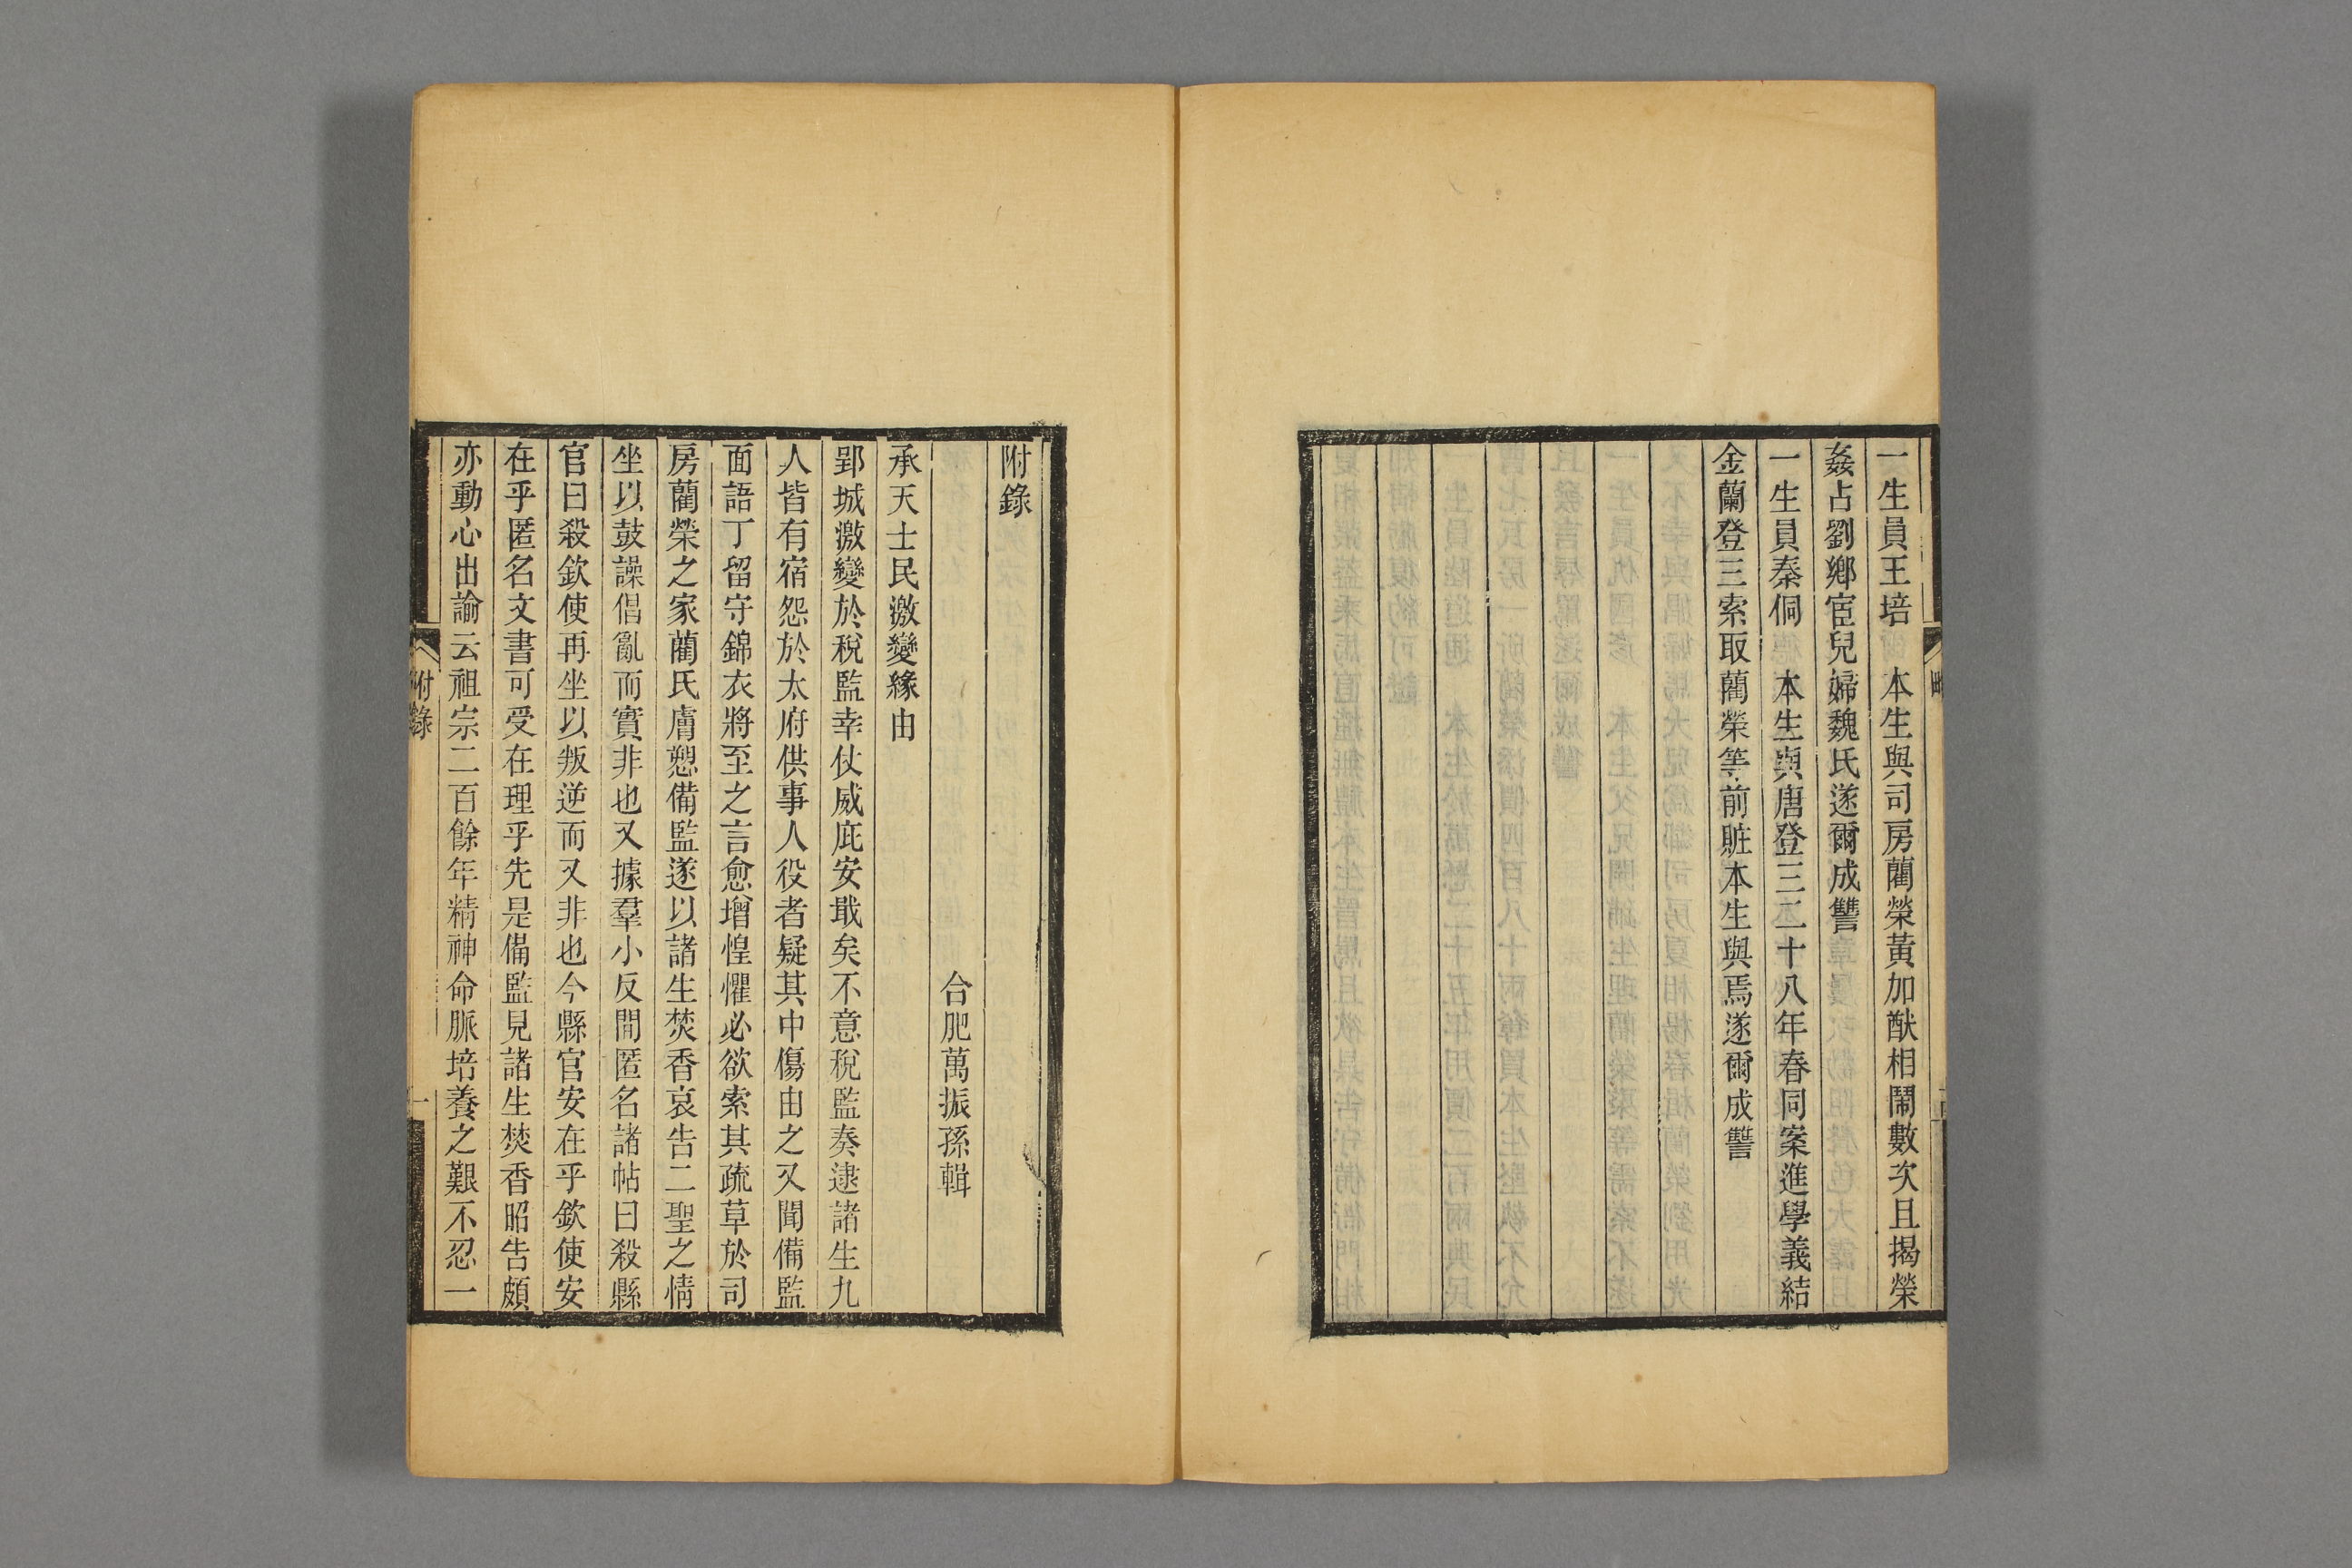 一生員王培　本生與司房藺榮黃加猷相鬧數次且揭榮
姦占劉鄉宦兒婦魏氏遂爾成讐
一生員秦侗　本生與唐登三二十八年春同案進學義結
金蘭登三索取藺榮等前賍本生與焉遂爾成讐
附錄
合肥萬振孫輯
承天士民激變緣由
郢城激變於稅監幸仗威庇安戢矣不意稅監奏逮諸生九
人皆有宿怨於太府供事人役者疑其中傷由之又聞備監
面語丁留守錦衣將至之言愈增惶懼必欲索其疏草於司
房藺榮之家藺氏膚愬備監遂以諸生焚香哀告二聖之情
坐以鼓譟倡亂而實非也又據羣小反間匿名諸帖曰殺縣
官曰殺欽使再坐以叛逆而又非也今縣官安在乎欽使安
在乎匿名文書可受在理乎先是備監見諸生焚香昭告頗
亦動心出諭云祖宗二百餘年精神命脈培養之艱不忍一
附錄
一